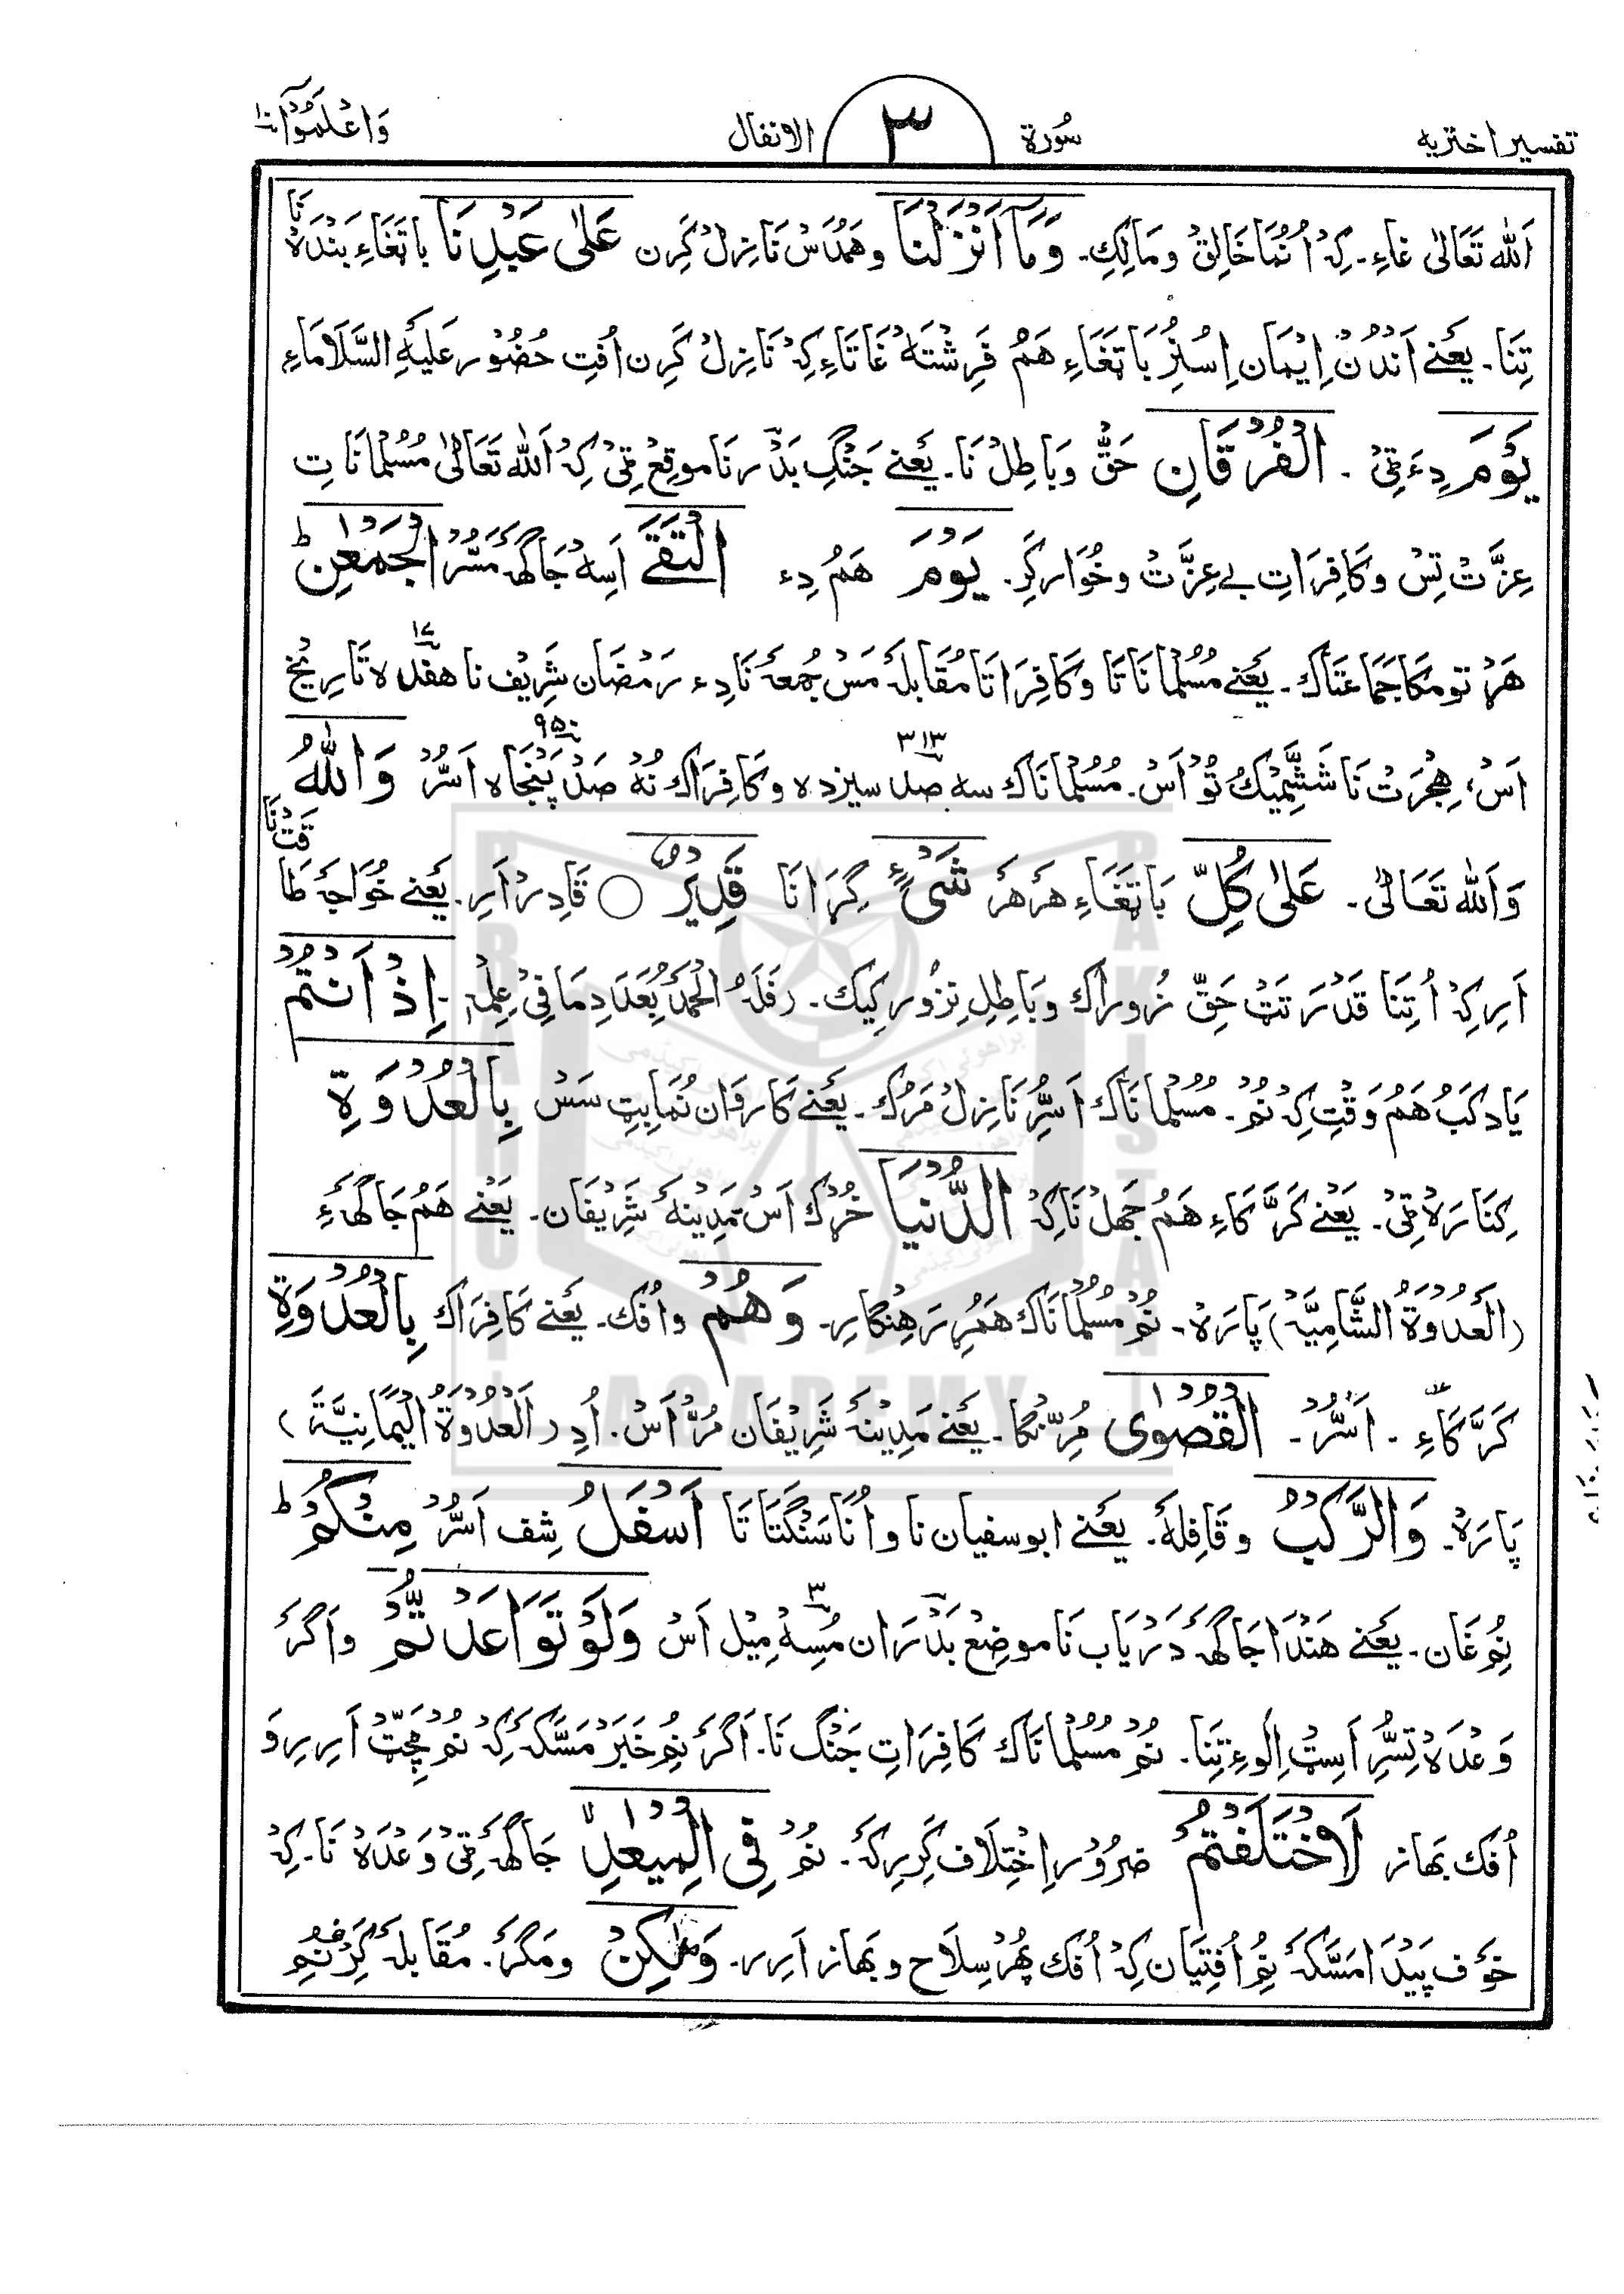 تفسیر اختریه سُورة ٣ الانفال وَاعْلَمُوۤا ١٠
اَللّٰه تَعَالیٰ غاءِ۔ کِہْ اُ نُمَا خَالِقْ ومَالِکِ۔ وَمَاۤ اَنْزَلْنَا وهَمُدَسْ نَازِلْ کَرِن عَلیٰ عَبْدِنَا باتَغَاءِ بَنْدَهْ نَا
تِنَا۔ یَعْنے اَنْدُنْ اِیْمَان اِسْنِرْ بَاتَغَاءِ هَمْ فَرِشْتَہْ غَاتَاءِ کِہْ نَازِلْ کَرِن اُفتِ حُضُوْر عَلیْہِ السَّلَامَاءِ
یَوْمَ دِءَ ٹِیْ۔ الْفُرْقَانِ حَقّْ وَبَاطِلْ نَا۔ یَعْنے جَنْگِ بَدْر نَا موقِعْ ٹِیْ کِہْ اَللّٰه تَعَالیٰ مُسُلْمَانَاتِ
عِزَّتْ تِسْ وکَافِرَاتِ بے عِزَّتْ وخُوَار کَرِ۔ یَوْمَ هَمْ دِء الْتَقَی اَسِہْ جَاگَہْ مَسُّرْ الْجَمْعٰنِ ط
هَرْتومَکَا جَمَاعَتَاک۔ یَعْنے مُسُلْمَانَاتَا وکَافِرَاتَا مُقَابِلَہ مَسْ جُمعَہ نَا دِء رَمْضَان شَرِیْف نا هفده ١٧ تَارِیْخْ
اَسْ، هِجْرَتْ نَا شَشُّمِیْکُ تُوْ اَسْ۔ مُسُلْمَانَاک سه صد سیزده ٣١٣ وکَافِرَاک نُهْ صَدْ پَنْجَاه ٩٥٠ اَسُّرْ وَاللّٰهُ
وَاللّٰه تَعَالیٰ۔ عَلیٰ کُلِّ بَاتَغَاءِ هَرْهَرْ شَیْءٍ گِرَانَا قَدِیْرٌ ○ قَادِرْ اَرِ۔ یَعْنے خُوَاجَہ طَاقَتْ نَا
اَرِ کِہْ اُ تِنَا قدْرَتَتْ حَقِّ زُورَاک وبَاطِلِ نِزُّور کِیْک۔ رفَلَهُ الْحَمْدُ بِعَدَدِ مَا فِیْ عِلْمِہٖ۔ اِذْ اَنْتُمْ
یَاد کَبُ هَمْ وَقْتِ کِہْ نُمْ۔ مُسُلْمَانَاک اَسُّرِ نَازِلْ مَرُک۔ یَعْنے کَارْوَان نُمَابِتِ سَسْ بِالْعُدْوَةِ
کِنَارَهْ ٹِیْ۔ یَعْنے کَرَّکَاءِ هَمْ جَهلْ نَا کِہْ الدُّنْیَا خُڑْک اَسْ مَدِیْنَہ شَرِیْفَان۔ یَعْنے هَمْ جَاگَهءِ
(الْعُدْوَةُ الشَّامِیَّہْ) پَارَهْ۔ نُمْ مُسُلْمَانَاک هَمْرِ رَهِنْگارِر۔ وَهُمْ واُفک۔ یَعْنے کَافِرَاک بِالْعُدْوَةِ
کَرَّکَاءِ۔ اَسُّرْ۔ الْقُصْوٰی مُرِّنْگا۔ یَعْنے مَدِیْنَہ شَرِیْفَان مُرّْ اَسْ. اُدِ ر اَلْعُدْوَةُ الْیَمَانِیَّةَ)
پَارَهْ۔ وَالرَّکْبُ وقَافِلَہ۔ یَعْنے ابوسفیان نا واُنَا سَنْگَتَاتَا اَسْفَلَ شِف اَسُّرْ مِنْکُمْ ط
نُمْ غَان۔ یَعْنے هَنْدَا جَاگَہْ دَرْیَاب نَا موضِعْ بَدْرَان مُسِہْ ٣ مِیْل اَسْ وَلَوْ تَوَاعَدْتُّمْ واَگرَ
وَعْدَهْ تِسُّرِ اَسِتْ اِلُوءِ تِنَا۔ نُمْ مُسُلْمَانَاک کَافِرَاتِ جَنْگ نَا۔ اَگرَ نُمْ خَبَرْ مَسَّکَہ کِہْ نُمْ مَچِّٹْ اَرِیرِ وَ
اُفک بَهاز لَاخْتَلَفْتُمْ ضرُوْر اِخْتِلَاف کَرِیرِکَہ۔ نُمْ فِی الْمِیْعٰدِ لا جَاگَہْ ٹِیْ وَعْدَهْ نَا۔ کِہْ
خَوْف پَیْدَا مَسَّکَہ نُمْ اُفتِیَان کِہْ اُفک پُرْ سِلَاح وبَهاز اَرِر۔ وَلٰکِنْ ومَگرَ۔ مُقَابِلَہ کَرْفِے نُمْ